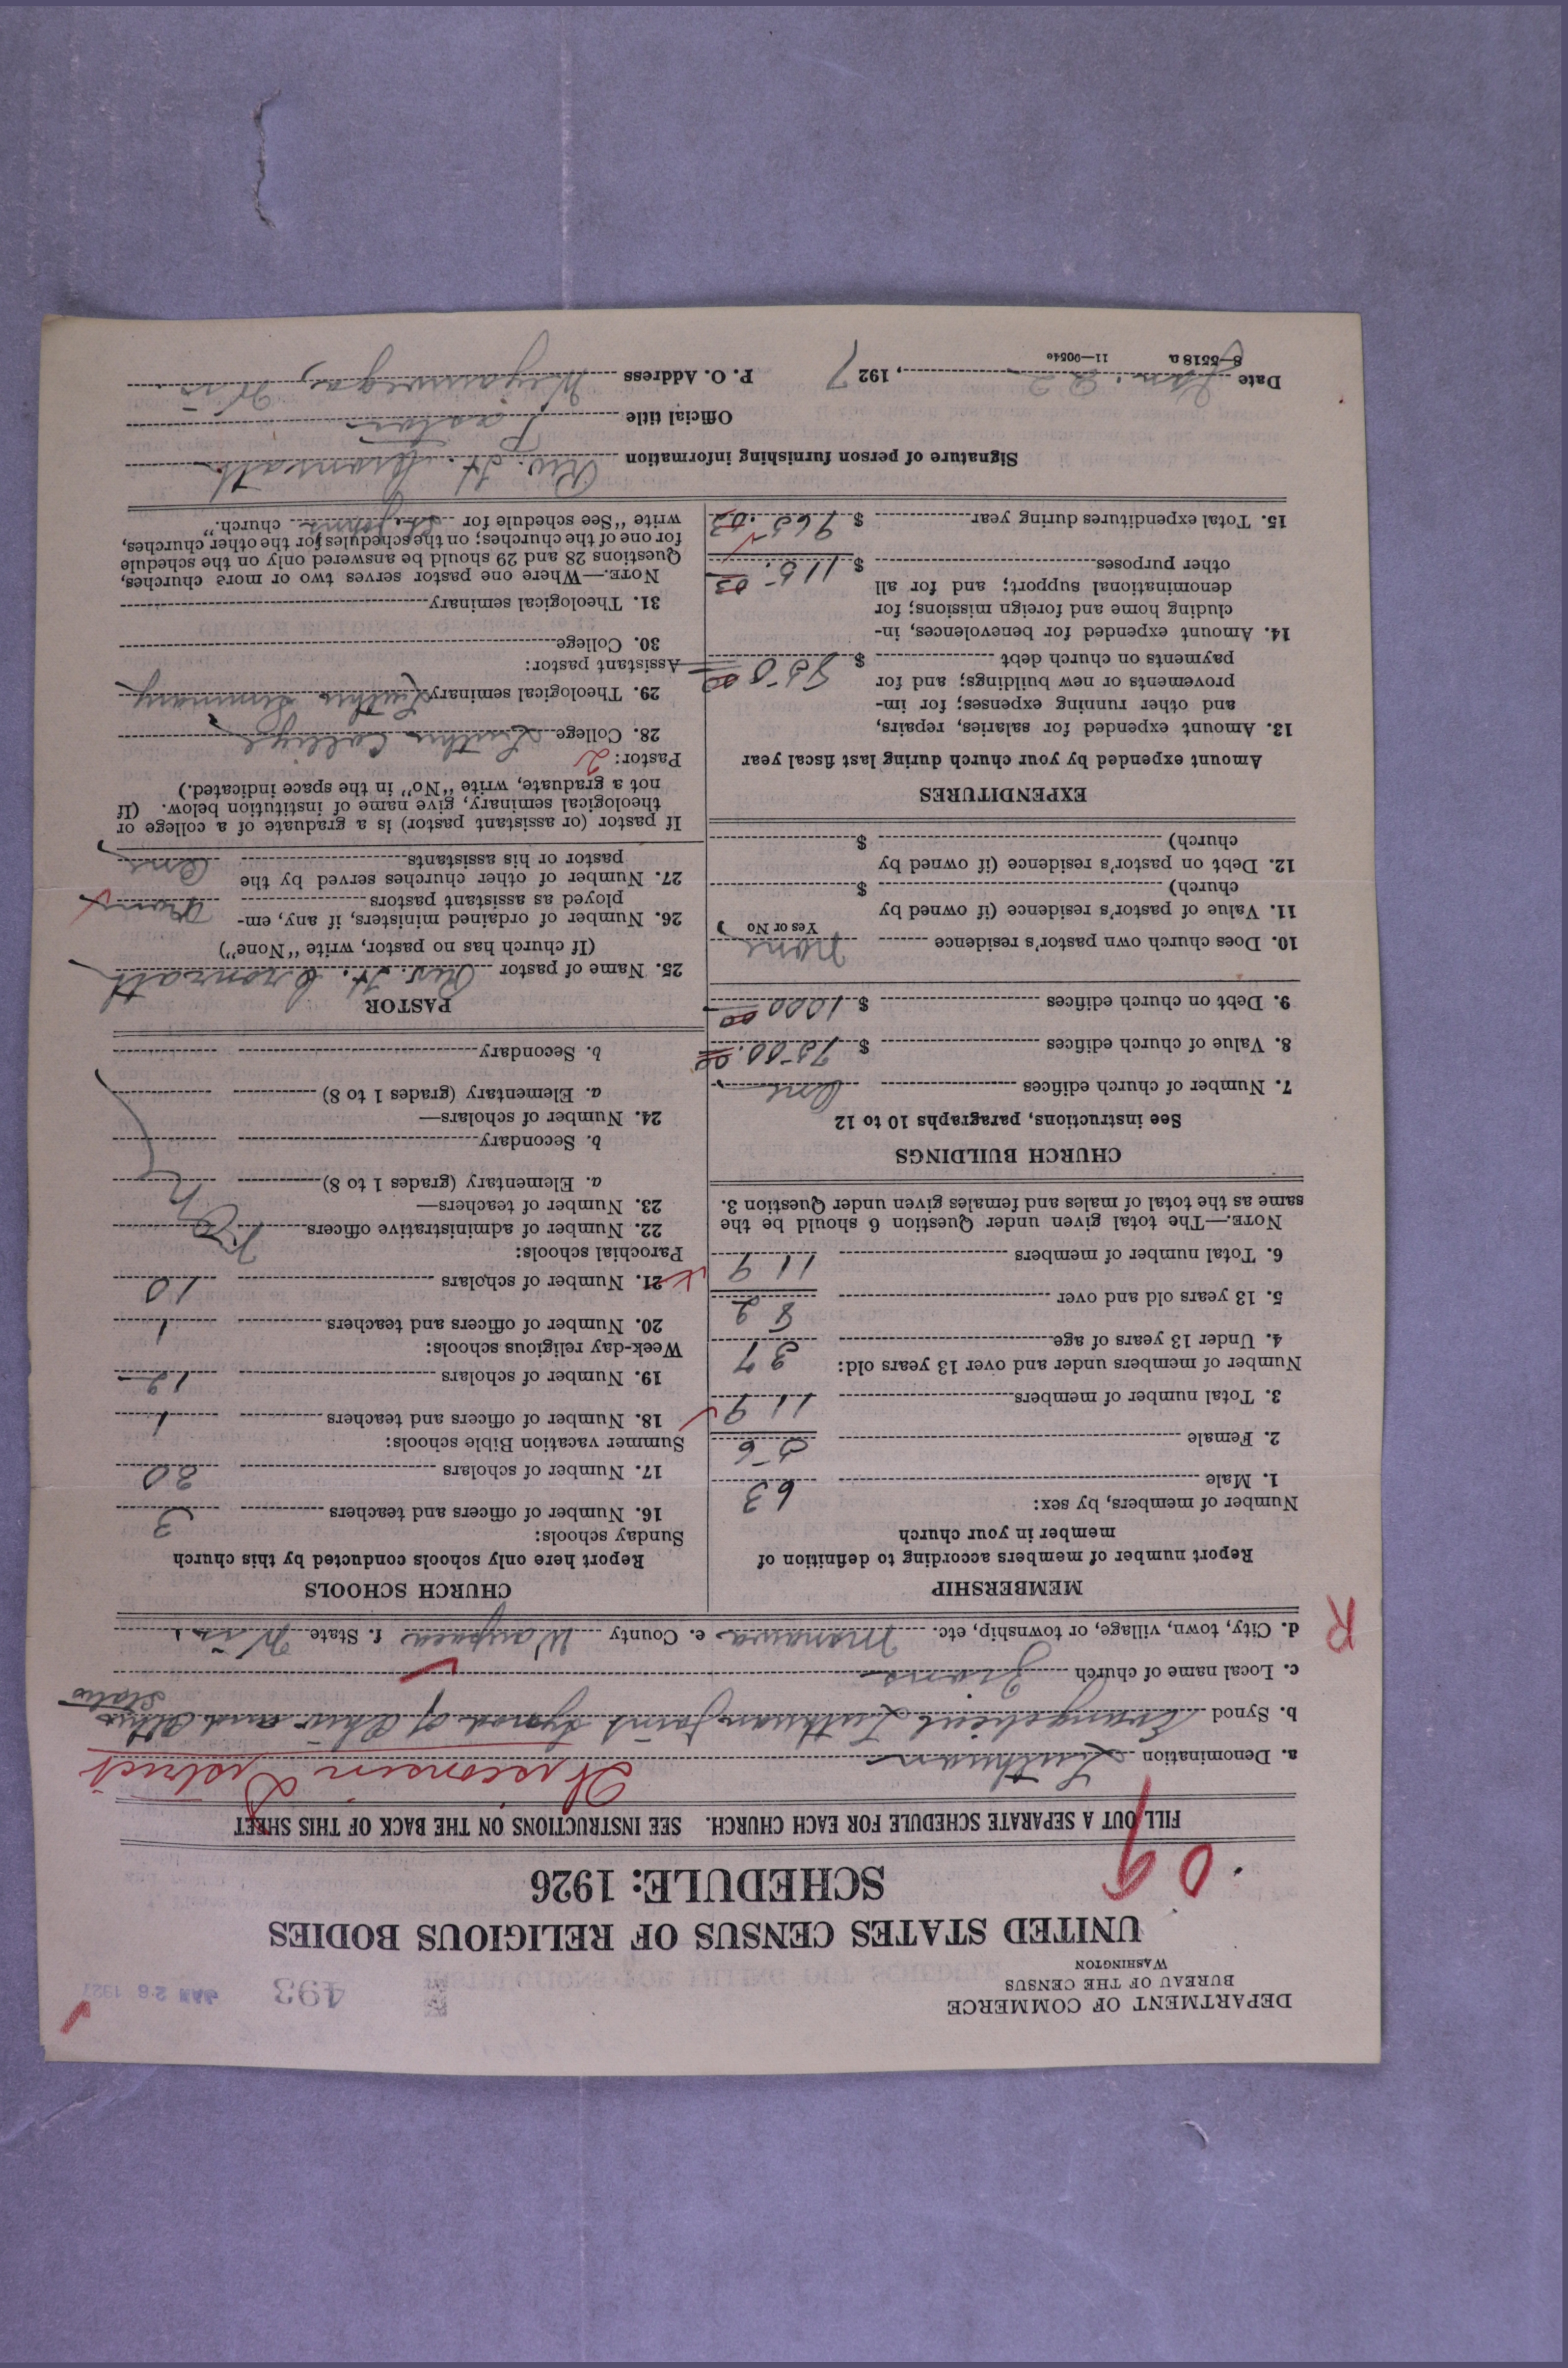 DEPARTMENT OF COMMERCE
BUREAU OF THE CENSUS
WASHINGTON
493
JAN 26 1927
UNITED STATES CENSUS OF RELIGIOUS BODIES
SCHEDULE: 1926
09
FILL OUT A SEPARATE SCHEDULE FOR EACH CHURCH. SEE INSTRUCTIONS ON THE BACK OF THIS SHEET
Wisconsin District
a. Denomination Lutheran
b. Synod Evangelical Lutheran Joint Synod of Ohio and Other States
c. Local name of church
d. City, town, village, or township, etc. Manawa e. County Waupaca f. State Wis.
R
MEMBERSHIP
Report number of members according to definition of
member in your church
Number of members, by sex:
1. Male 63
2. Female 56
3. Total number of members 119
Number of members under and over 13 years old:
4. Under 13 years of age 37
5. 13 years old and over 82
6. Total number of members 119
NOTE.—The total given under Question 6 should be the
same as the total of males and females given under Question 3.
CHURCH BUILDINGS
See instructions, paragraphs 10 to 12
7. Number of church edifices One
8. Value of church edifices $ 7500.00
9. Debt on church edifices $ 1000 00
10. Does church own pastor's residence none
Yes or No
11. Value of pastor's residence (if owned by
church) $
12. Debt on pastor's residence (if owned by
church) $
EXPENDITURES
Amount expended by your church during last fiscal year
13. Amount expended for salaries, repairs,
and other running expenses; for im-
provements or new buildings; and for
payments on church debt $ 850 00
14. Amount expended for benevolences, in-
cluding home and foreign missions; for
denominational support; and for all
other purposes $ 115.03
15. Total expenditures during year $ 965.03
CHURCH SCHOOLS
Report here only schools conducted by this church
Sunday schools:
16. Number of officers and teachers 3
17. Number of scholars 30
Summer vacation Bible schools:
18. Number of officers and teachers 1
19. Number of scholars 12
Week-day religious schools:
20. Number of officers and teachers 1
21. Number of scholars 10
Parochial schools:
22. Number of administrative officers
23. Number of teachers—
a. Elementary (grades 1 to 8)
b. Secondary
24. Number of scholars—
a. Elementary (grades 1 to 8)
b. Secondary
PASTOR
25. Name of pastor Rev. H.
(If church has no pastor, write "None")
26. Number of ordained ministers, if any, em-
ployed as assistant pastors None
27. Number of other churches served by the
pastor or his assistants One
If pastor (or assistant pastor) is a graduate of a college or
theological seminary, give name of institution below. (If
not a graduate, write "No" in the space indicated.)
Pastor: 2
28. College Luther College
29. Theological seminary Luther Seminary
Assistant pastor:
30. College
31. Theological seminary
NOTE.—Where one pastor serves two or more churches,
Questions 28 and 29 should be answered only on the schedule
for one of the churches; on the schedules for the other churches,
write "See schedule for St. Johns church."
Signature of person furnishing information Rev. H.
Official title Pastor
Date Jan. 22, 1927 P. O. Address Weyauwega, Wis
8—5518a 11—9054e